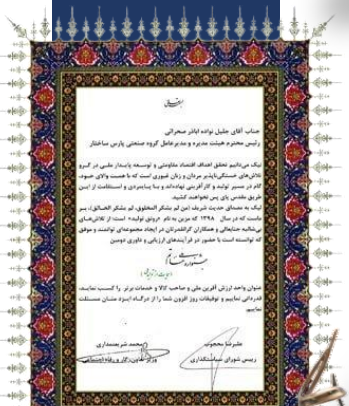 جناب آقای جلیل نواده اباذر صحرائی
رئیس محترم هیئت مدیره و مدیرعامل گروه صنعتی پارس ساختار
نیک می‌دانیم تحقق اهداف اقتصاد مقاومتی و توسعه پایدار ملی در گرو
تلاش‌های خستگی‌ناپذیر مردان و زنان غیوری است که با همت والای خود،
گام در مسیر تولید و کارآفرینی نهاده‌اند و با پایمردی و استقامت از این
طریق مقدس پای پس نخواهند کشید.
لیک به مصداق حدیث شریف (من لم یشکر المخلوق، لم یشکر الخالق)، بر
ماست که در سال ۱۳۹۸ که مزین به نام «رونق تولید» است؛ از تلاش‌های
بی‌شائبه جنابعالی و همکاران گرانقدرتان در ایجاد مجموعه‌ای توانمند و موفق
که توانسته است با حضور در فرآیندهای ارزیابی و داوری دومین
جشنواره ملی حاتم
عنوان واحد ارزش آفرین ملی و صاحب کالا و خدمات برتر را کسب نمایند،
قدردانی نماییم و توفیقات روز افزون شما را از درگاه ایزد منان مسئلت
نماییم.
علیرضا محجوب
رییس شورای سیاستگذاری
محمد شریعتمداری
وزیر تعاون، کار و رفاه اجتماعی